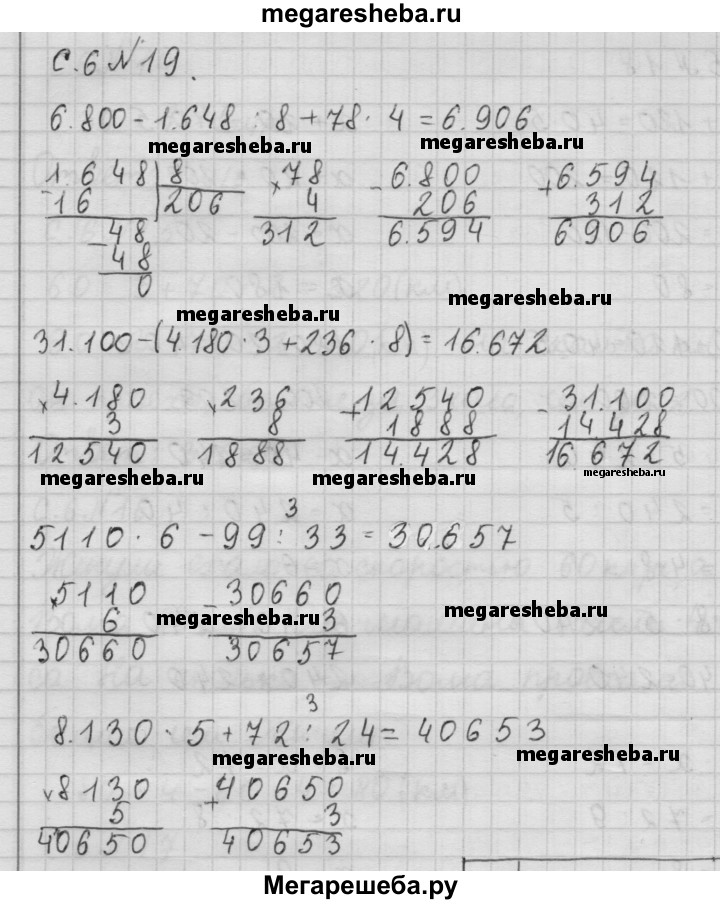 megaresheba.ru
с.6 №19.
6.800 - 1.648 : 8 + 78 · 4 = 6.906
megaresheba.ru
1.648 | 8 × 78 - 6.800 + 6.594
- 16 | 206 4 206 312
- 48 312 6.594 6.906
48
0
megaresheba.ru megaresheba.ru
31.100 - (4.180 · 3 + 236 · 8) = 16.672
× 4.180 × 236 + 12540 - 31.100
3 8 1888 14428
12540 1888 14.428 16 672
megaresheba.ru megaresheba.ru megaresheba.ru
3
5110 · 6 - 99 : 33 = 30.657
× 5110 - 30660
6 3
30660 30657
megaresheba.ru
3
8.130 · 5 + 72 : 24 = 40653
megaresheba.ru megaresheba.ru
× 8130 + 40650
5 3
40650 40653
Мегарешеба.ру